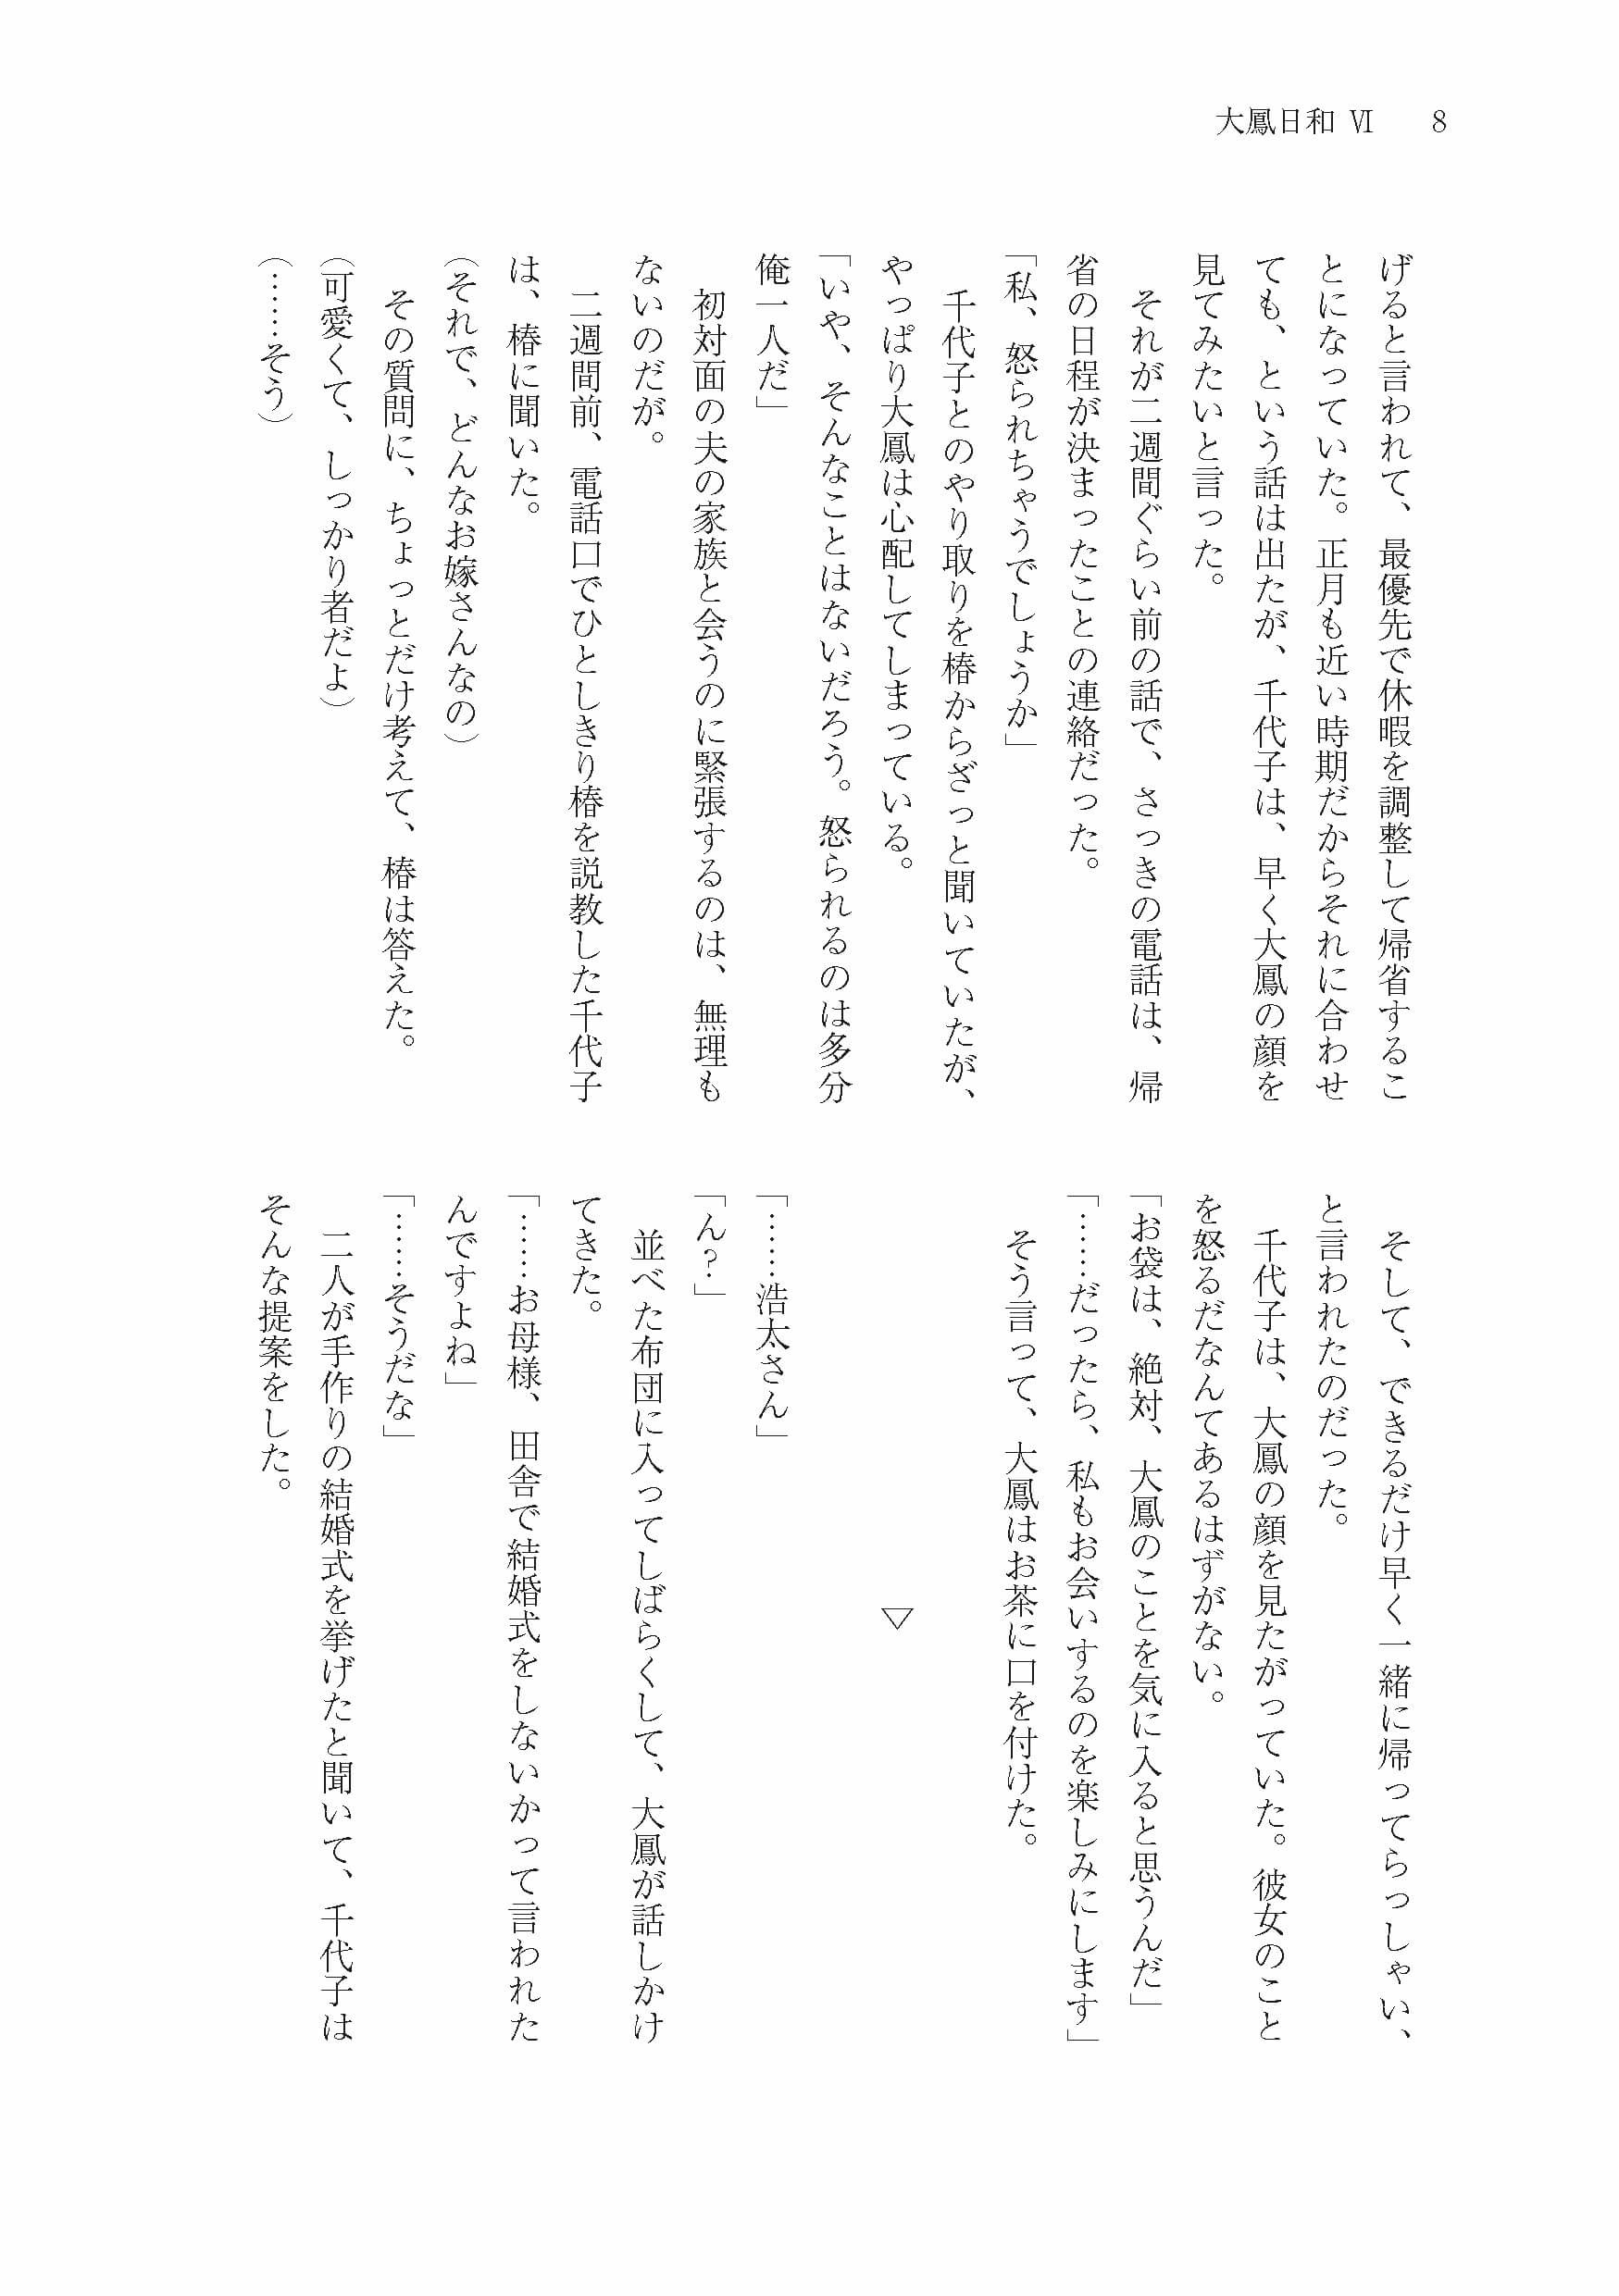 大鳳日和 Ⅵ　8
げると言われて、最優先で休暇を調整して帰省するこ
とになっていた。正月も近い時期だからそれに合わせ
ても、という話は出たが、千代子は、早く大鳳の顔を
見てみたいと言った。
　それが二週間ぐらい前の話で、さっきの電話は、帰
省の日程が決まったことの連絡だった。
「私、怒られちゃうでしょうか」
　千代子とのやり取りを椿からざっと聞いていたが、
やっぱり大鳳は心配してしまっている。
「いや、そんなことはないだろう。怒られるのは多分
俺一人だ」
　初対面の夫の家族と会うのに緊張するのは、無理も
ないのだが。
　二週間前、電話口でひとしきり椿を説教した千代子
は、椿に聞いた。
（それで、どんなお嫁さんなの）
　その質問に、ちょっとだけ考えて、椿は答えた。
（可愛くて、しっかり者だよ）
（……そう）
　そして、できるだけ早く一緒に帰ってらっしゃい、
と言われたのだった。
　千代子は、大鳳の顔を見たがっていた。彼女のこと
を怒るだなんてあるはずがない。
「お袋は、絶対、大鳳のことを気に入ると思うんだ」
「……だったら、私もお会いするのを楽しみにします」
　そう言って、大鳳はお茶に口を付けた。
▽
「……浩太さん」
「ん？」
　並べた布団に入ってしばらくして、大鳳が話しかけ
てきた。
「……お母様、田舎で結婚式をしないかって言われた
んですよね」
「……そうだな」
　二人が手作りの結婚式を挙げたと聞いて、千代子は
そんな提案をした。